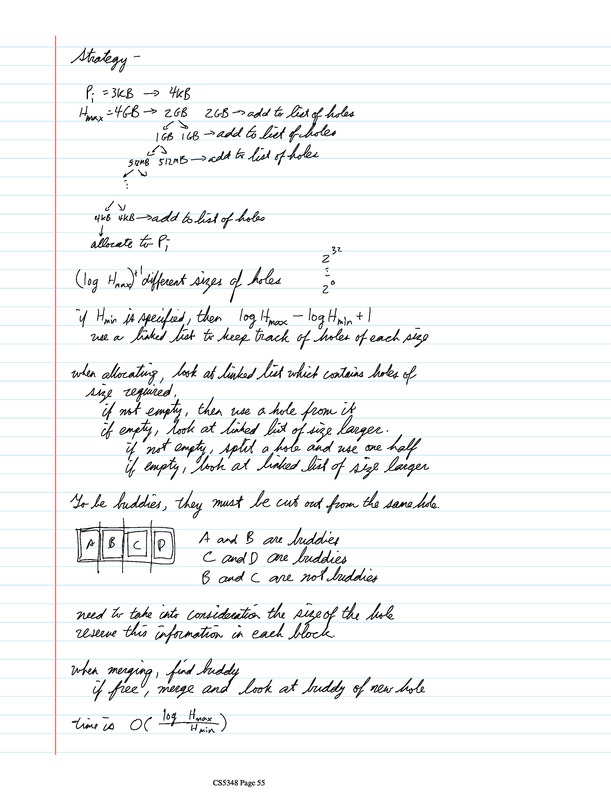 Strategy -
Pi = 3KB → 4KB
Hmax = 4GB → 2GB 2GB → add to list of holes
1GB 1GB → add to list of holes
512MB 512MB → add to list of holes
⋮
4KB 4KB → add to list of holes
allocate to Pi
2^32
⋮
2^0
(log Hmax)+1 different sizes of holes
if Hmin is specified, then log Hmax - log Hmin + 1
use a linked list to keep track of holes of each size
when allocating, look at linked list which contains holes of
size required.
if not empty, then use a hole from it
if empty, look at linked list of size larger.
if not empty, split a hole and use one half
if empty, look at linked list of size larger
To be buddies, they must be cut out from the same hole.
A B C D
A and B are buddies
C and D are buddies
B and C are not buddies
need to take into consideration the size of the hole
reserve this information in each block
when merging, find buddy
if free, merge and look at buddy of new hole
time is O( log Hmax / Hmin )
CS5348 Page 55